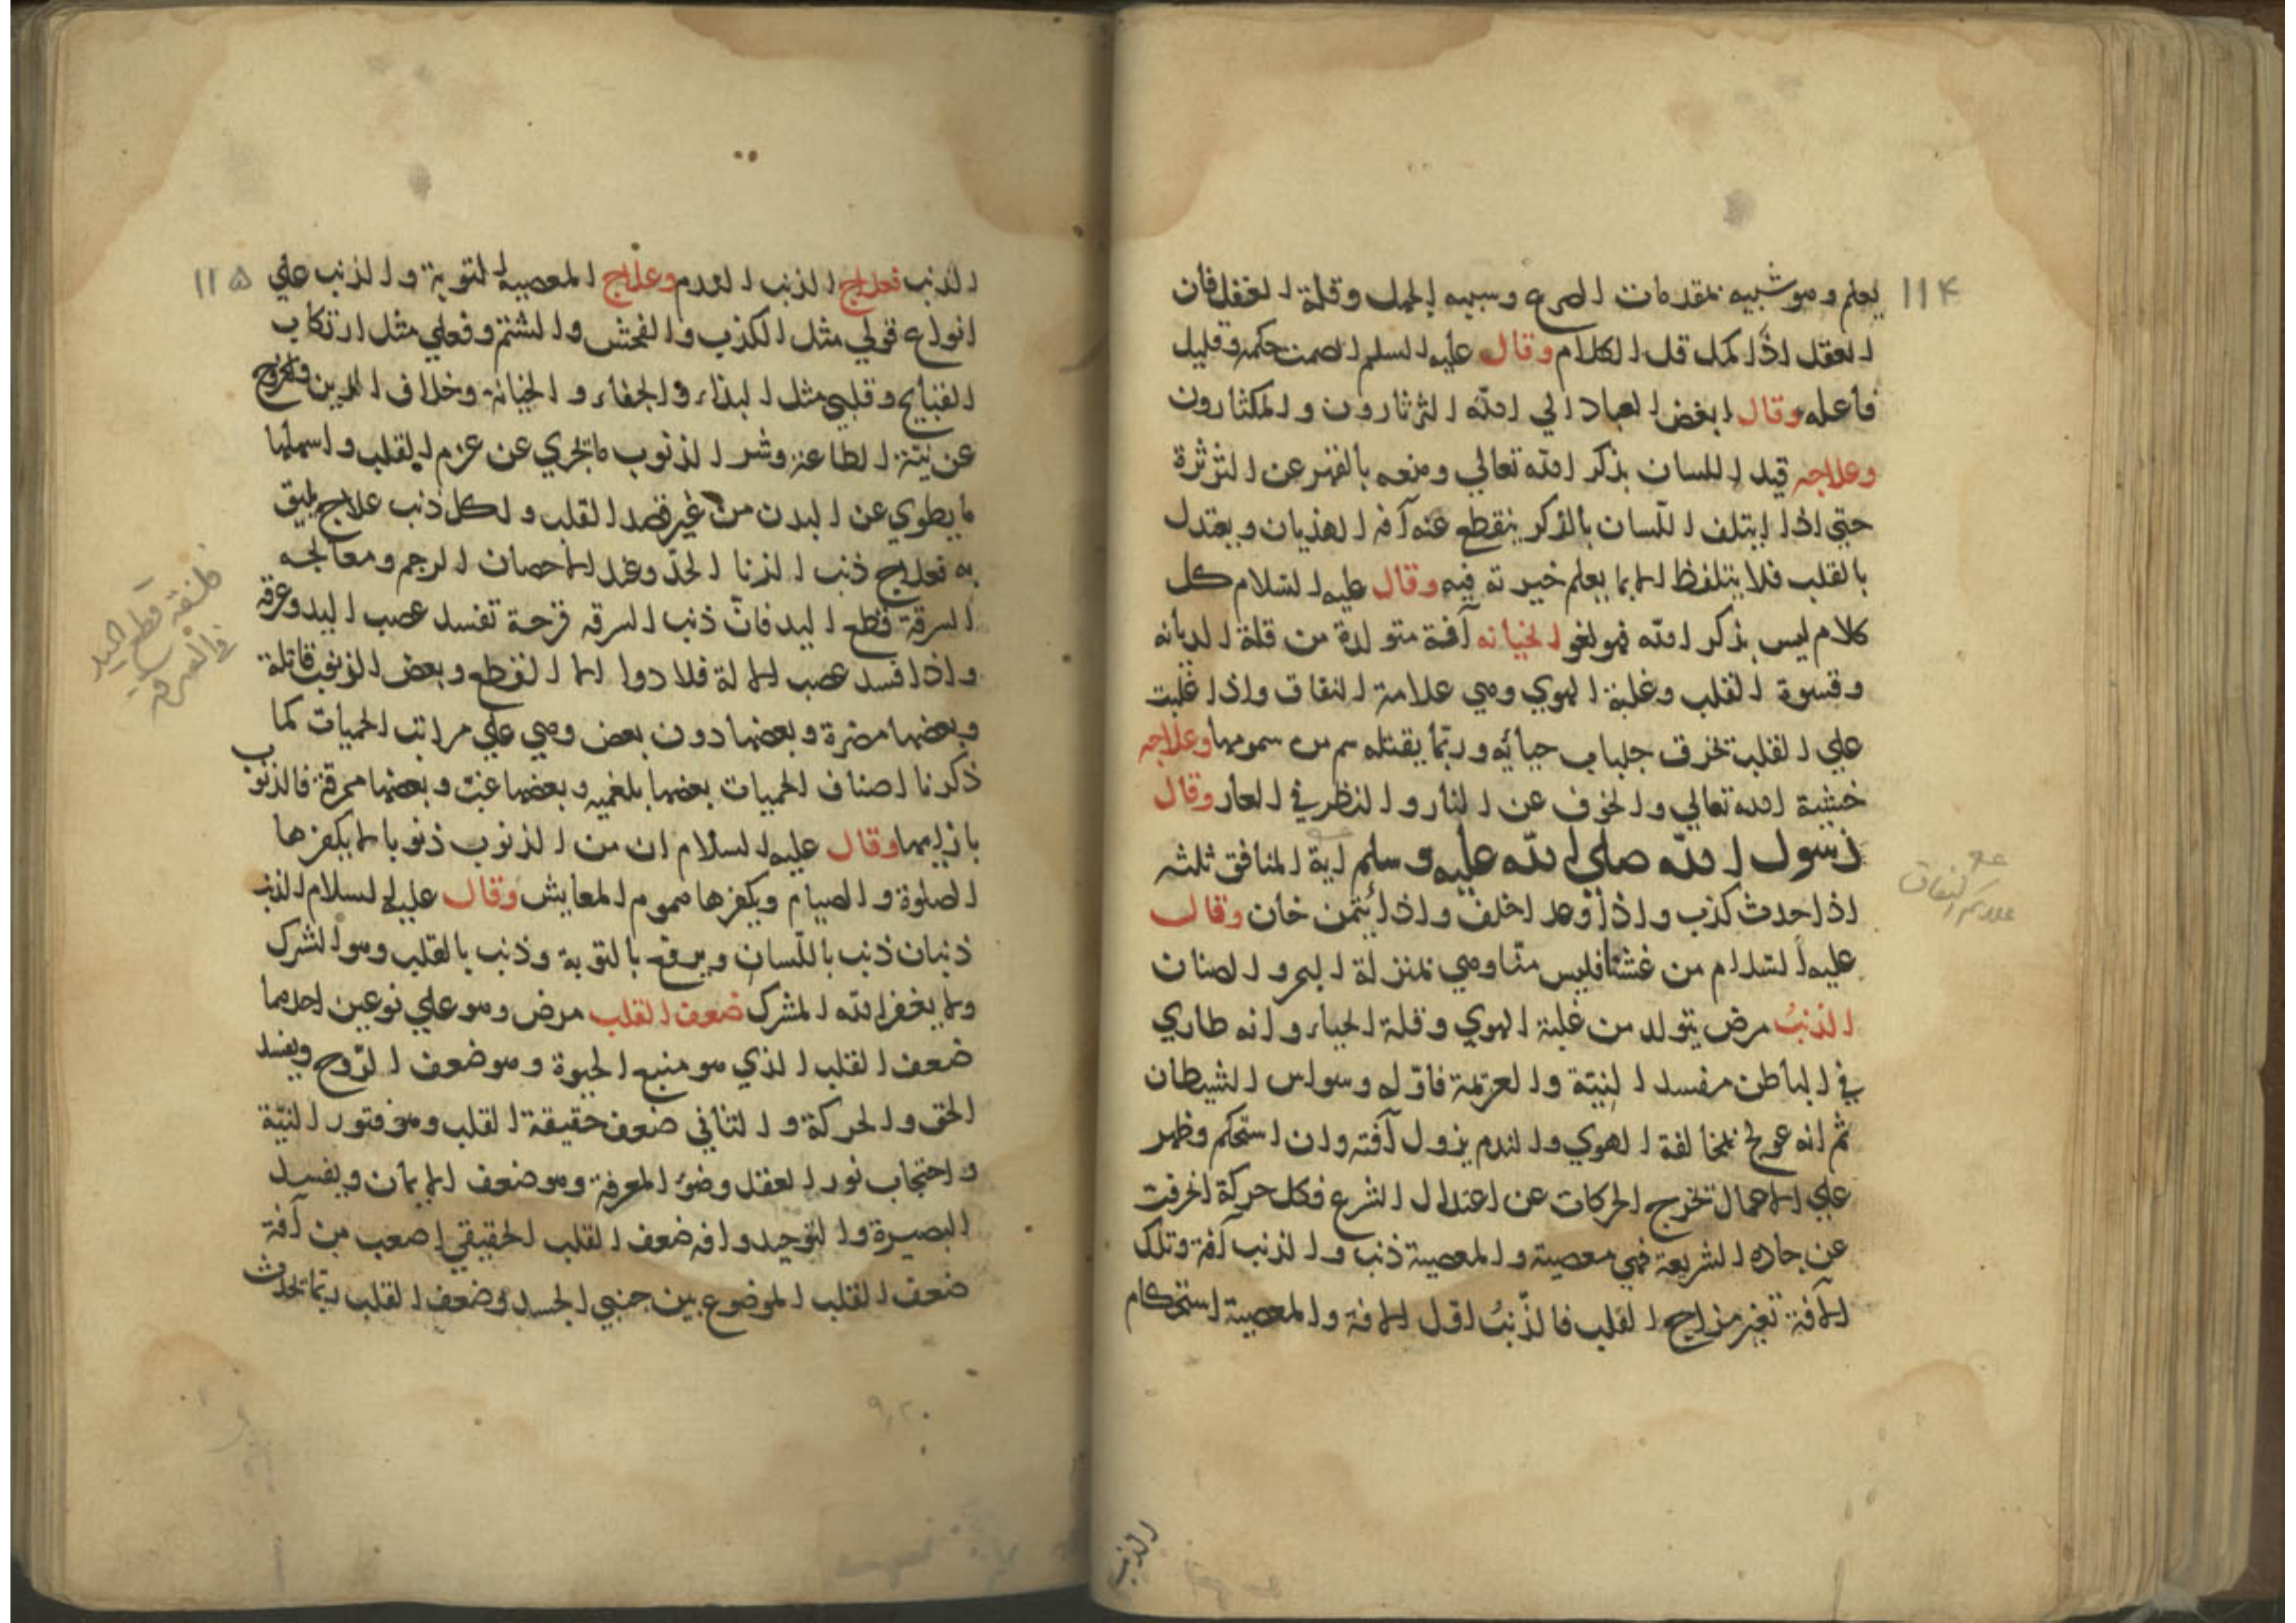 ١١٤
يعلم وهو شبيه بمقدمات الصرع وسببه الجهل وقلة العقل فان
العقل اذا كمل قل الكلام وقال عليه السلم الصمت حكمة وقليل
فاعله وقال ابغض العباد الي الله الثرثارون والمكثارون
وعلاجه قيد اللسان بذكر الله تعالي ومنعه بالقهر عن الثرثرة
حتي اذا ايتلف اللسان بالذكر ينقطع عنه آفة الهذيان ويعتدل
بالقلب فلا يتلفظ الا بما يعلم خيرته فيه وقال عليه السلام كل
كلام ليس بذكر الله فهو لغو الخيانه آفة متولدة من قلة الديانه
وقسوة القلب وغلبة الهوي وهي علامة النفاق واذا غلبت
علي القلب تخرق جلباب حيائه وربما يقتله سم من سمومها وعلاجه
خشية الله تعالي والخوف عن النار والنظر في العار وقال
رسول الله صلي الله عليه وسلم اية المنافق ثلثه
اذا حدث كذب واذا اوعد اخلف واذا ائتمن خان وقال
عليه السلام من غشنا فليس منا وهي بمنزلة البحر والصنان
الذنبُ مرض يتولد من غلبة الهوي وقلة الحياء وانه طاري
في الباطن مفسد النية والعزيمة فاوله وسواس الشيطان
ثم انه عولج بمخالفة الهوي والندم يزول آفته وان استحكم وظهر
علي الاعمال تخرج الحركات عن اعتدال الشرع فكل حركة انحرفت
عن جاده الشريعة فهي معصية والمعصية ذنب والذنب آفة وتلك
الآفة تغير مزاج القلب فالذنبُ اول الافة والمعصية استحكام
الذنب
علامة النفاق
١١٥
الذنب فعلاج الذنب الندم وعلاج المعصية التوبة والذنب علي
انواع قولي مثل الكذب والفحش والشتم وفعلي مثل ارتكاب
القبايح وقلبي مثل البذاء والجفاء والخيانة وخلاف الدين والخروج
عن نية الطاعة وشر الذنوب ما تجري عن عزم القلب واسهلها
ما يطوي عن البدن من غير قصد القلب ولكل ذنب علاج يليق
به فعلاج ذنب الزنا الحدّ وعند الاحصان الرجم ومعالجه
السرقة قطع اليد فانّ ذنب السرقه قرحة تفسد عصب اليد وعرقه
واذا فسد عصب الالة فلا دوا الا القطع وبعض الذنوب قاتلة
وبعضها مضرة وبعضها دون بعض وهي علي مراتب الحميات كما
ذكرنا اصناف الحميات بعضها بلغميه وبعضها غبّ وبعضها محرقة فالذنوب
بازايها وقال عليه السلام ان من الذنوب ذنوبا لا يكفرها
الصلوة والصيام ويكفرها هموم المعايش وقال عليه السلام الذنب
ذنبان ذنب باللسان ويرفع بالتوبة وذنب بالقلب وهو الشرك
ولا يغفر الله المشرك ضعف القلب مرض وهو علي نوعين احدهما
ضعف القلب الذي هو منبع الحيوة وهو ضعف الرّوح ويفسد
الحق والحركة والثاني ضعف حقيقة القلب وهو فتور النيّة
واحتجاب نور العقل وضوء المعرفة وهو ضعف الايمان ويفسد
البصيرة والتوحيد وافة ضعف القلب الحقيقي اصعب من آفة
ضعف القلب الموضوع بين جنبي الجسد وضعف القلب ربما تحدث
فلسفة قطع اليد
في السرقة